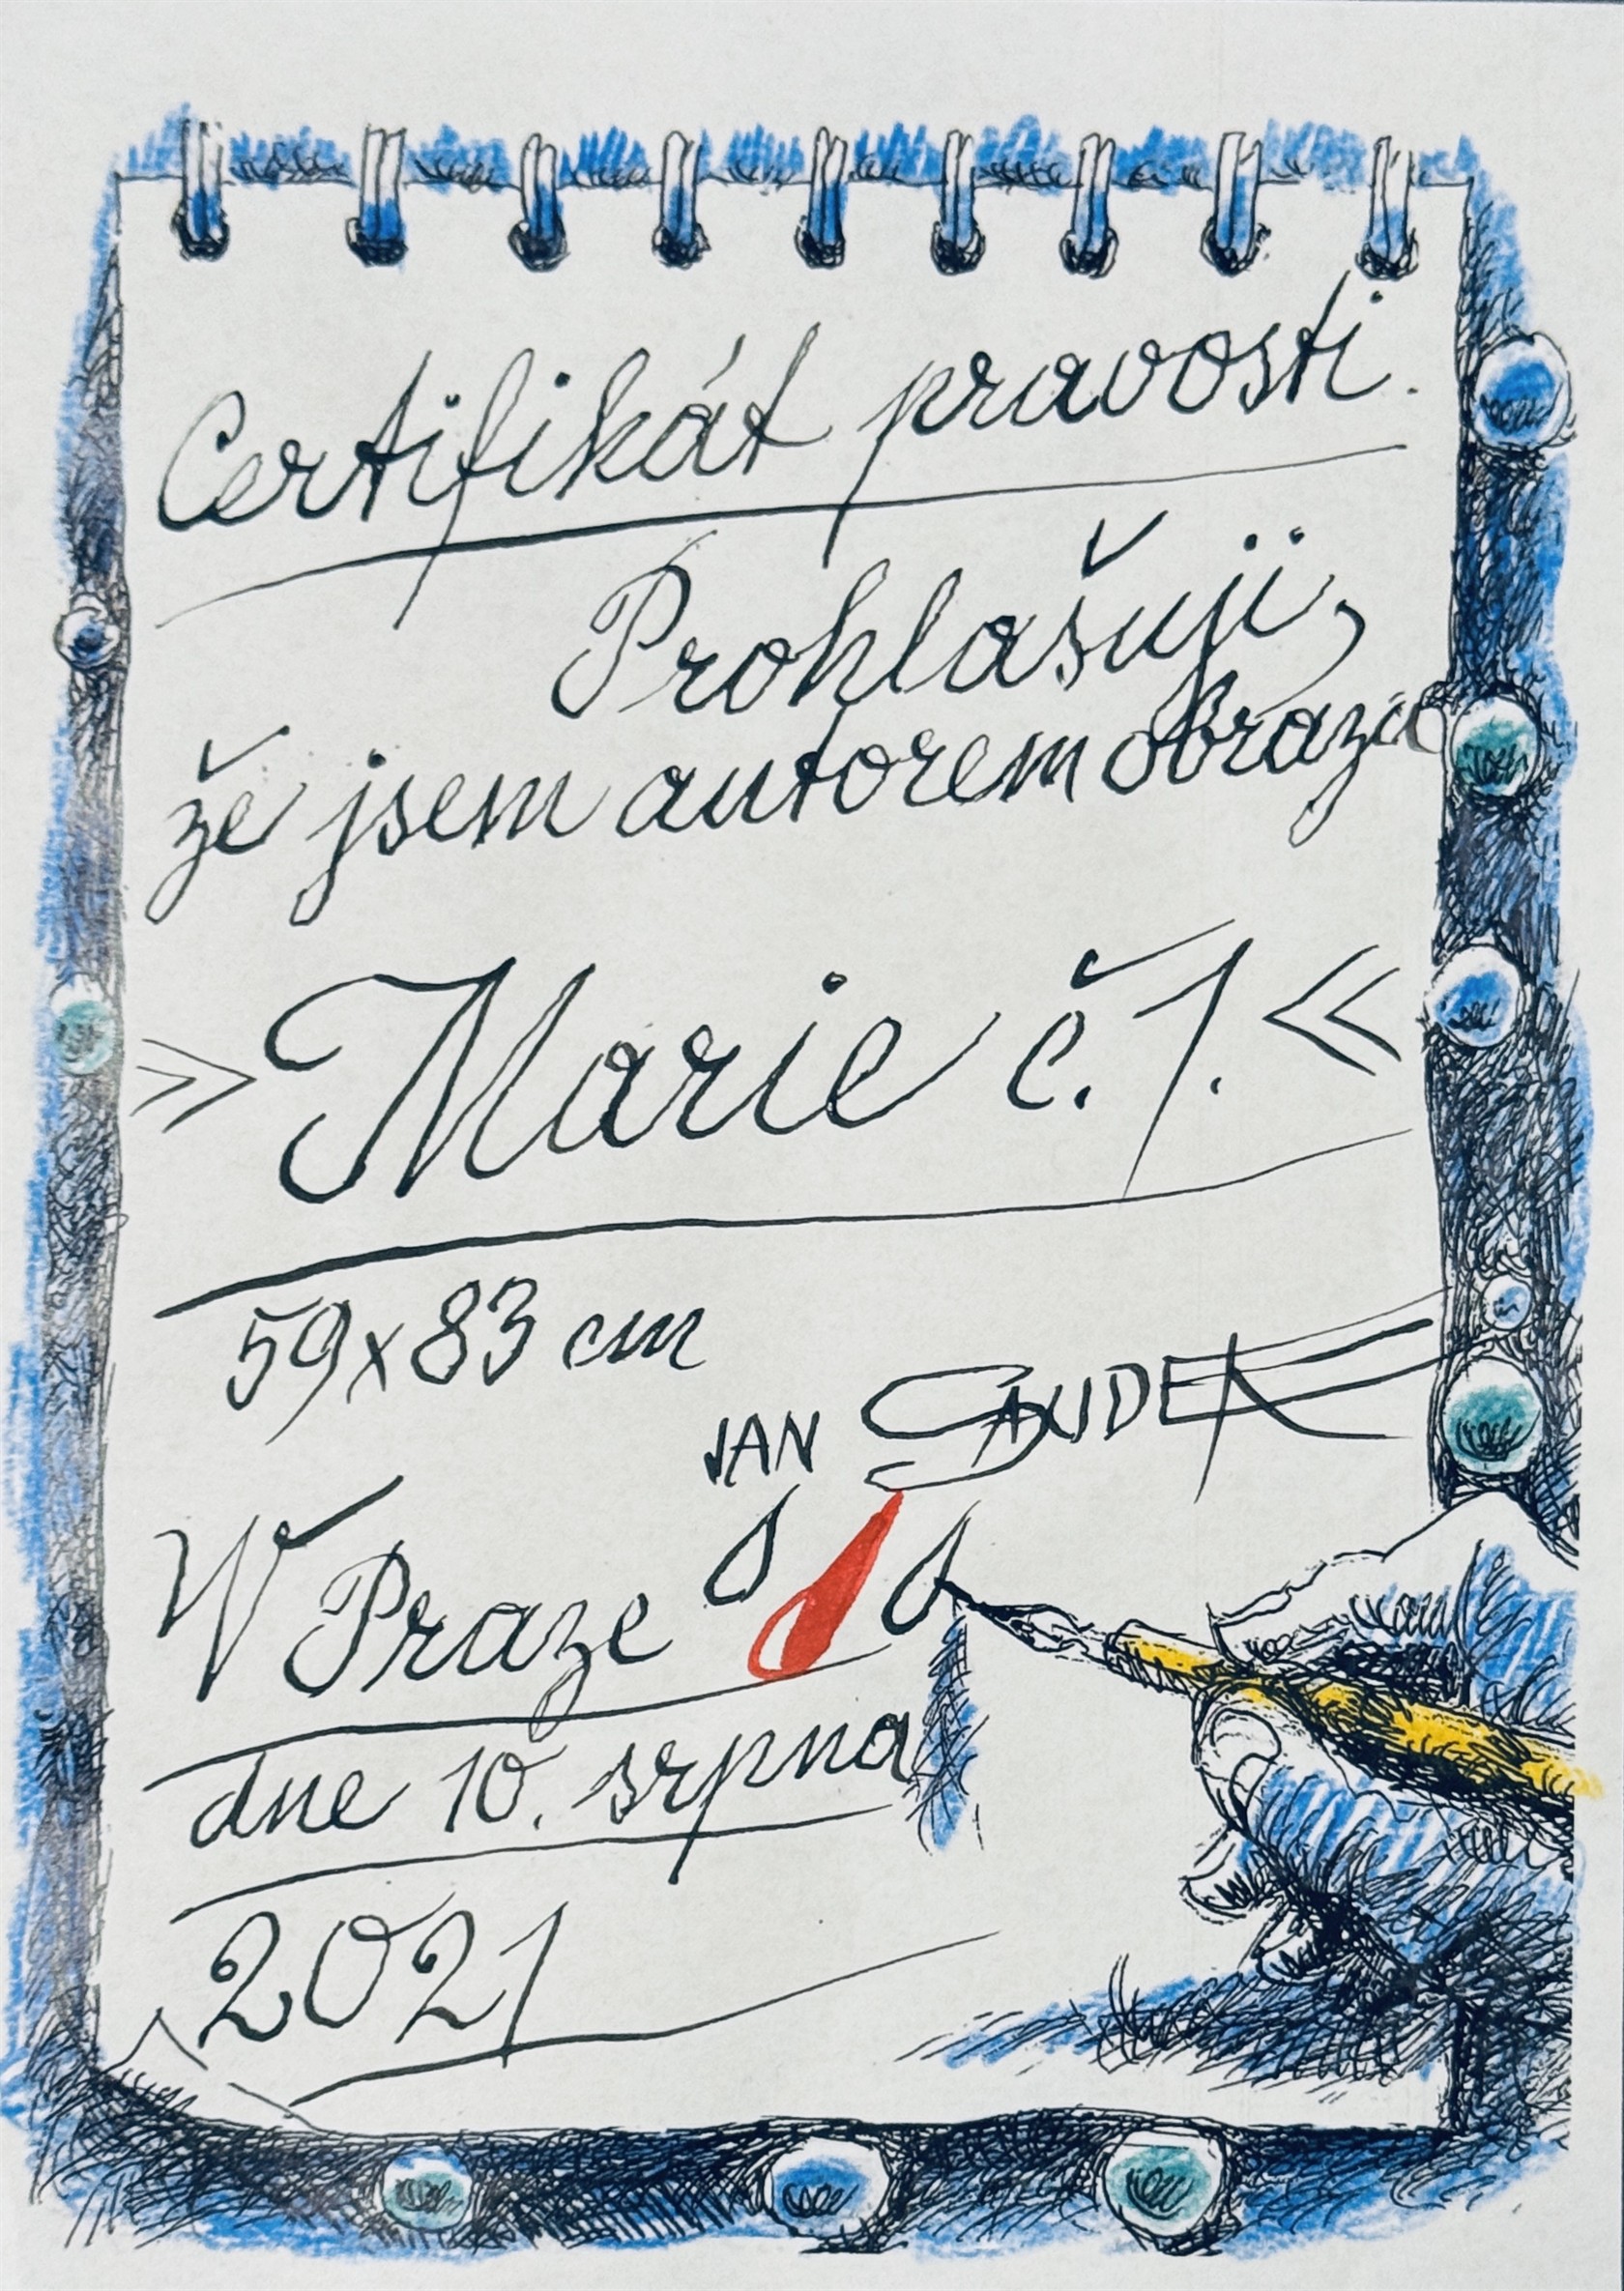 Certifikát pravosti.
Prohlašuji,
že jsem autorem obrazu
»Marie č. 1.«
59x83 cm
JAN SAUDEK
V Praze
dne 10. srpna
2021